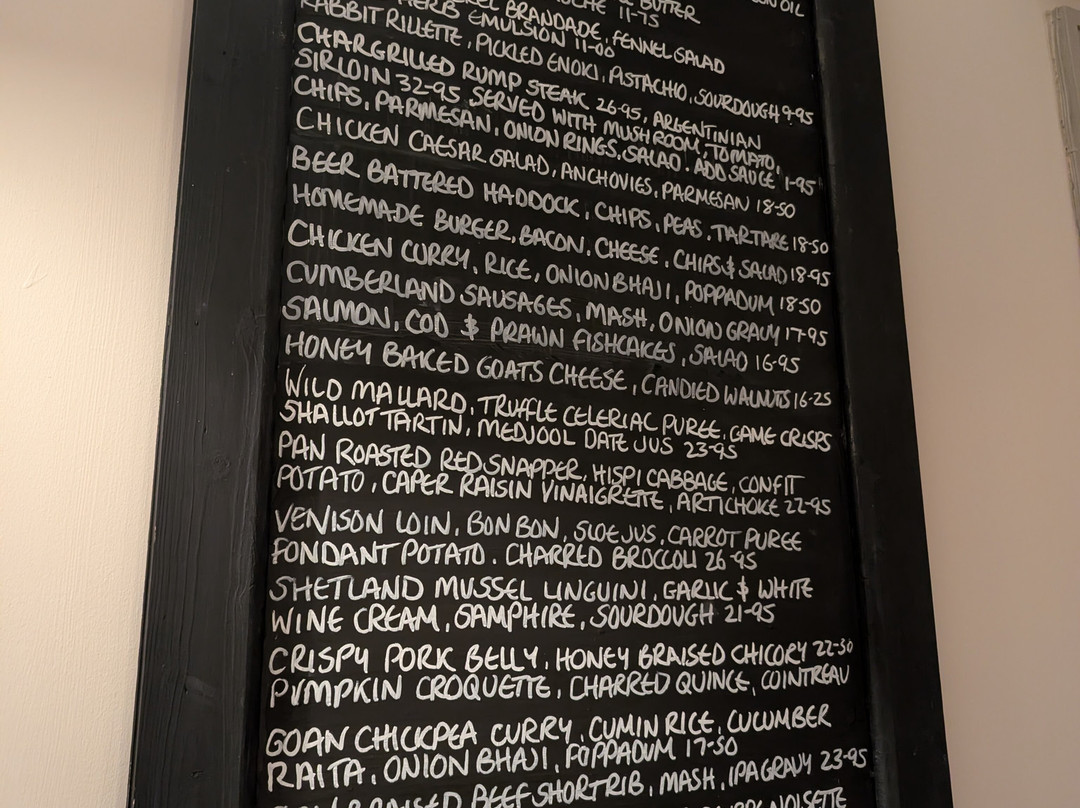 BUTTER
11-75
BRANDADE, FENNEL SALAD
HERB EMULSION 11-00
RABBIT RILLETTE, PICKLED ENOKI, PISTACHIO, SOURDOUGH 9-95
CHARGRILLED RUMP STEAK 26-95, ARGENTINIAN
SIRLOIN 32-95 SERVED WITH MUSHROOM, TOMATO,
CHIPS, PARMESAN, ONION RINGS, SALAD. ADD SAUCE 1-95
CHICKEN CAESAR SALAD, ANCHOVIES, PARMESAN 18-50
BEER BATTERED HADDOCK, CHIPS, PEAS, TARTARE 18-50
HOMEMADE BURGER, BACON, CHEESE, CHIPS & SALAD 18-95
CHICKEN CURRY, RICE, ONION BHAJI, POPPADUM 18-50
CUMBERLAND SAUSAGES, MASH, ONION GRAVY 17-95
SALMON, COD & PRAWN FISHCAKES, SALAD 16-95
HONEY BAKED GOATS CHEESE, CANDIED WALNUTS 16-25
WILD MALLARD, TRUFFLE CELERIAC PUREE, GAME CRISPS
SHALLOT TARTIN, MEDJOOL DATE JUS 23-95
PAN ROASTED RED SNAPPER, HISPI CABBAGE, CONFIT
POTATO, CAPER RAISIN VINAIGRETTE, ARTICHOKE 22-95
VENISON LOIN, BON BON, SLOE JUS, CARROT PUREE
FONDANT POTATO. CHARRED BROCCOLI 26-95
SHETLAND MUSSEL LINGUINI, GARLIC & WHITE
WINE CREAM, SAMPHIRE, SOURDOUGH 21-95
CRISPY PORK BELLY, HONEY BRAISED CHICORY 22-50
PUMPKIN CROQUETTE, CHARRED QUINCE, COINTREAU
GOAN CHICKPEA CURRY, CUMIN RICE, CUCUMBER
RAITA, ONION BHAJI, POPPADUM 17-50
BRAISED BEEF SHORTRIB, MASH, IPA GRAVY 23-95
NOISETTE